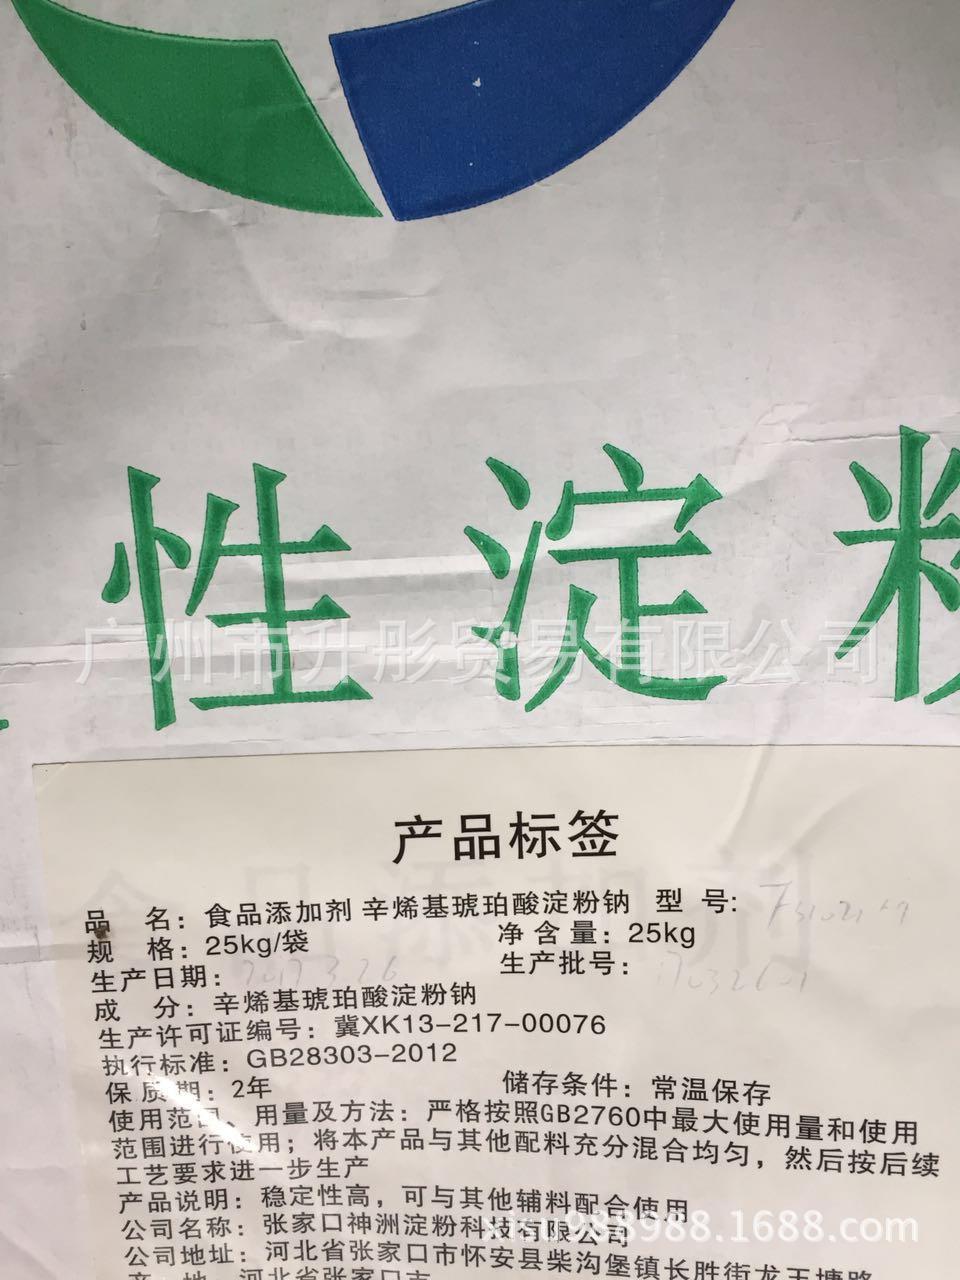 性淀粉
广州市升彤贸易有限公司
产品标签
品 名：食品添加剂 辛烯基琥珀酸淀粉钠 型 号:
规 格：25kg/袋 净含量：25kg
生产日期：2017.3.26 生产批号：
成 分：辛烯基琥珀酸淀粉钠
生产许可证编号：冀XK13-217-00076
执行标准：GB28303-2012
保质期：2年 储存条件：常温保存
使用范围、用量及方法：严格按照GB2760中最大使用量和使用
范围进行使用；将本产品与其他配料充分混合均匀，然后按后续
工艺要求进一步生产
产品说明：稳定性高，可与其他辅料配合使用
公司名称：张家口神洲淀粉科技有限公司
xisu988988.1688.com
公司地址：河北省张家口市怀安县柴沟堡镇长胜街龙王塘路
产 地：河北省张家口市